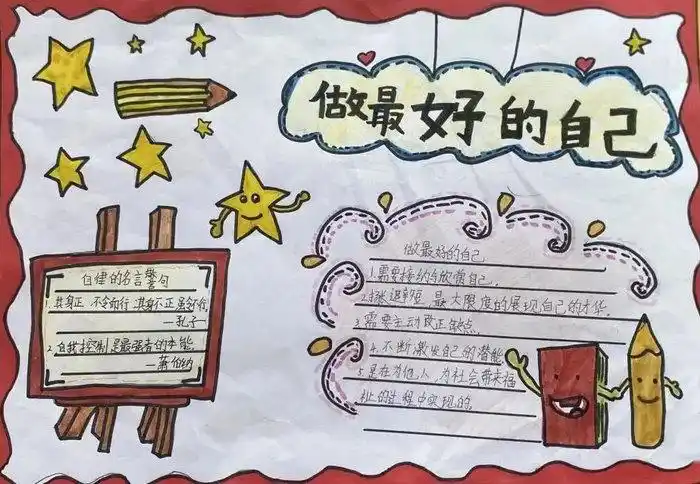 做最好的自己
自律的名言警句
1.其身正，不令而行，其身不正虽令不
—孔子
2.自我控制是最强者的本能。
—萧伯纳
做最好的自己
1.需要接纳与欣赏自己。
最大限度的展现自己的才华。
3.需要主动改正缺点。
4.不断激发自己的潜能
5.是在为他人，为社会带来福
祉的过程中实现的。